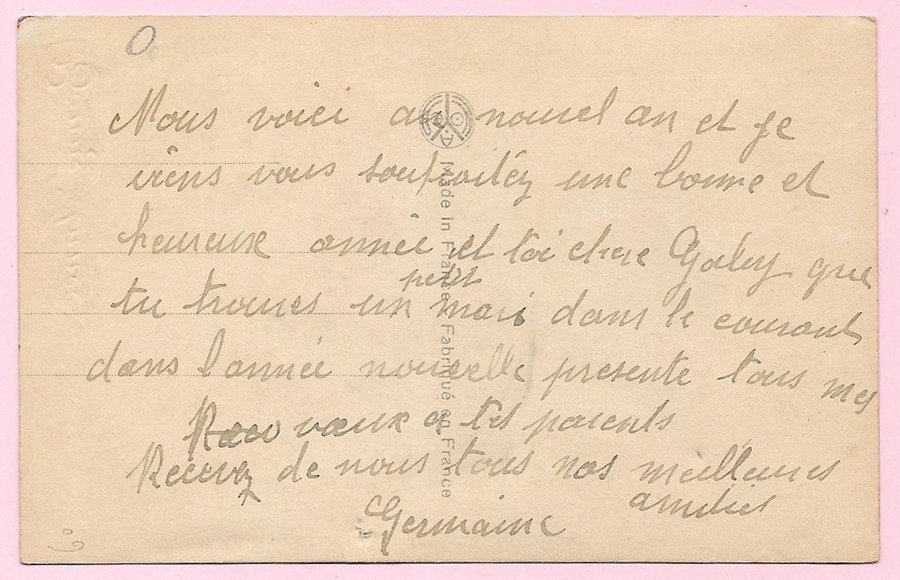 Nous voici au nouvel an et je
viens vous souhaitéz une bonne et
heureuse année et toi chere Gaby que
tu trouves un petit mari dans le courant
dans l'année nouvelle presente tous mes
voeux a tes parents
Recevez de nous tous nos meilleures
amitiés
Germaine
Made in France Fabriqué en France